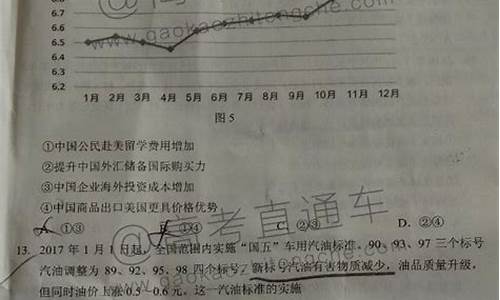 6.8
6.7
6.6
6.5
6.4
6.3
6.2
1月 2月 3月 4月 5月 6月 7月 8月 9月 10月 11月 12月
图 5
www.gaokaozhitongche.com
①中国公民赴美留学费用增加
②提升中国外汇储备国际购买力
③中国企业海外投资成本增加
④中国商品出口美国更具价格优势
@高考直通车
①③ ①④ C. ②③ D. ②④
13. 2017 年 1 月 1 日起，全国范围内实施“国五”车用汽油标准，90、93、97 三个标号
汽油调整为 89、92、95、98 四个标号，新标号汽油有害物质减少，油品质量升级，
但同时油价上涨 0.5—0.6 元。这一汽油标准的实施